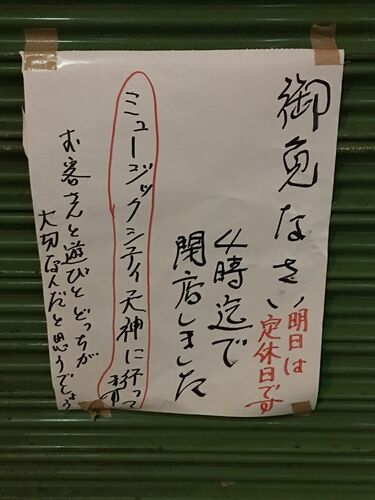 御免なさい
明日は
定休日です
4時迄で
閉店しました
ミュージックシティ天神に行って
お客さんと遊びとどっちが
大切なんだと思うでしょう